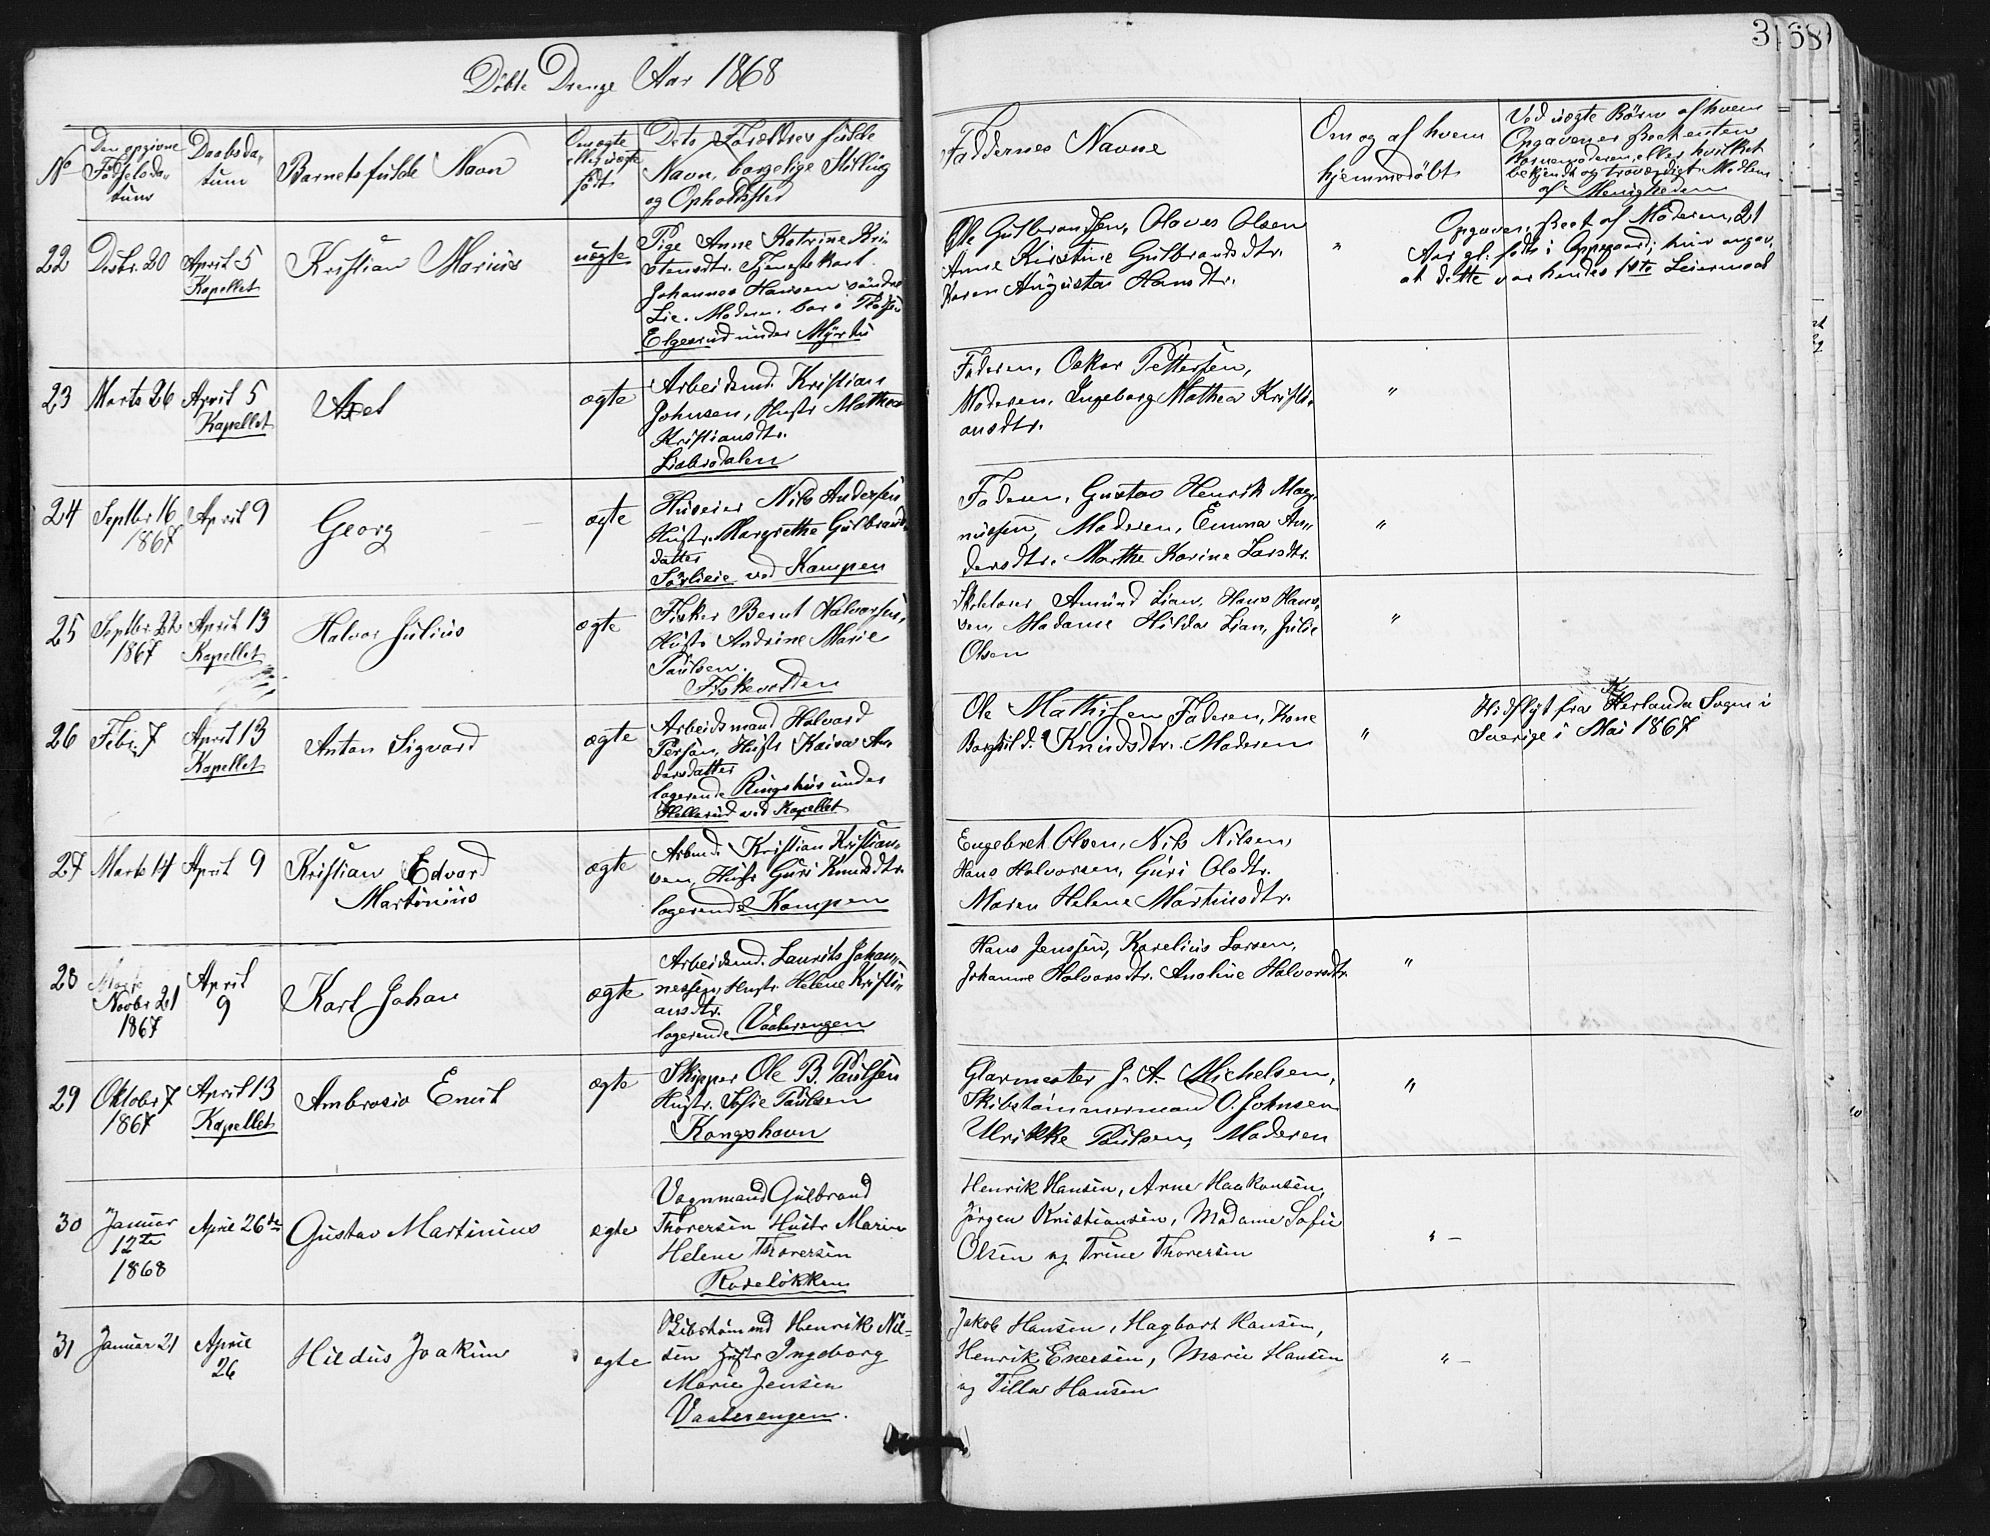 Döbte Drenge Aar 1868
No
Den opgivne
Fødselsda-
tum
Daabsda-
tum
Barnets fulde Navn
Om ægte
eller uægte
født
Dets Forældres fulde
Navn, borgelige Stilling
og Opholdssted
22
Decbr. 20
April 5
Kapellet
Kristian Marius
uægte
Pige Anne Katrine Kri-
stensdtr. Tjenestekarl
Johannes Hansen
Lie. Moderen
Elgerud under
23
Marts 26
April 5
Kapellet
Axel
ægte
Arbeidsmd. Kristian
Johnsen, Hustr Mathea
Kristiansdtr.
Liabrodalen
24
Septbr 16
1867
April 9
Georg
ægte
Huseier Nils Andersen
Hustr. Margrethe Gulbrands-
datter
ved Kampen
25
Septbr. 22
1867
April 13
Kapellet
Halvor Julius
ægte
Fisker Bernt Halvorsen,
Hustr Andrine Marie
Paulsen.
Fiskevolden
26
Febr. 7
April 13
Kapellet
Anton Sigvard
ægte
Arbeidsmand Halvard
Persön, Hustr Kaisa An-
dersdatter
logerende Ringshus under
Hellerud ved Kapellet
27
Marts 14
April 9
Kristian Edvard
Martinius
ægte
Arbmd. Kristian Kristian-
sen, Hustr Guri Knudsdtr.
logerende Kampen
28
Novbr 21
1867
April
9
Karl Johan
ægte
Arbeidsmd. Laurits Johan-
nessen, Hustr. Helene Kristi-
ansdtr.
logerende Vaalerengen
29
Oktobr 7
1867
April 13
Kapellet
Ambrosio Emil
ægte
Skipper Ole B. Paulsen
Hustr. Sofie Paulsen
Kongshavn
30
Januar
12te
1868
April 26de
Gustav Martinius
ægte
Vognmand Gulbrand
Thoresen Hustr Maria
Helene Thoresen
Rodeløkken
31
Januar 21
April
26
Hildus Joakim
ægte
Skibstømmd Henrik Nil-
sen Hustr Ingeborg
Marie Jensen
Vaalerengen.
3
68
Faddernes Navne
Om og af hvem
hjemmedöbt
Ved uægte Börn af hvem
Opgaven er skeet enten
Barnemoderen, eller hvilket
bekjendt og troværdigt Medlem
af Menigheden
Ole Gulbrandsen, Olaves Olsen
Anne Kirstine Gulbrandsdtr.
Karen Augusta Hansdtr.
"
Opgaven skeet af Moderen, 21
Aar gl. født i Oppegaard; hun angav,
at dette var hendes 1ste Leiermaal
Faderen, Oskar Pettersen,
Moderen, Ingeborg Mathea Kristi-
ansdtr.
"
Faderen, Gustav Henrik Mag-
nussen, Moderen, Emma An-
dersdtr. Marthe Karine Larsdtr.
"
Skolelærer Amund Lian, Hans Han-
sen, Madame Hilda Lian, Julie
Olsen
"
Ole Mathisen Faderen, Kone
Borghild Knudsdtr. Moderen
"
Hidflyt fra Herlanda Sogn i
Sverige i Mai 1867
Engebret Olsen, Nils Nilsen,
Hans Halvorsen, Guri Olsdtr.
Maren Helene Martinsdtr.
Hans Jenssen, Karelius Larsen,
Johanne Halvorsdtr. Anoline Halvorsdtr.
"
Glarmester J. A. Michelsen,
Skibstømmermand O. Johnsen
Ulrikke Paulsen, Moderen
"
Henrik Hansen, Arne Haakonsen,
Jørgen Kristiansen, Madame Sofie
Olsen og Trine Thoresen
" -
Jakob Hansen, Hagbart Hansen,
Henrik Enersen, Marie Hansen
og Tilla Hansen
" -